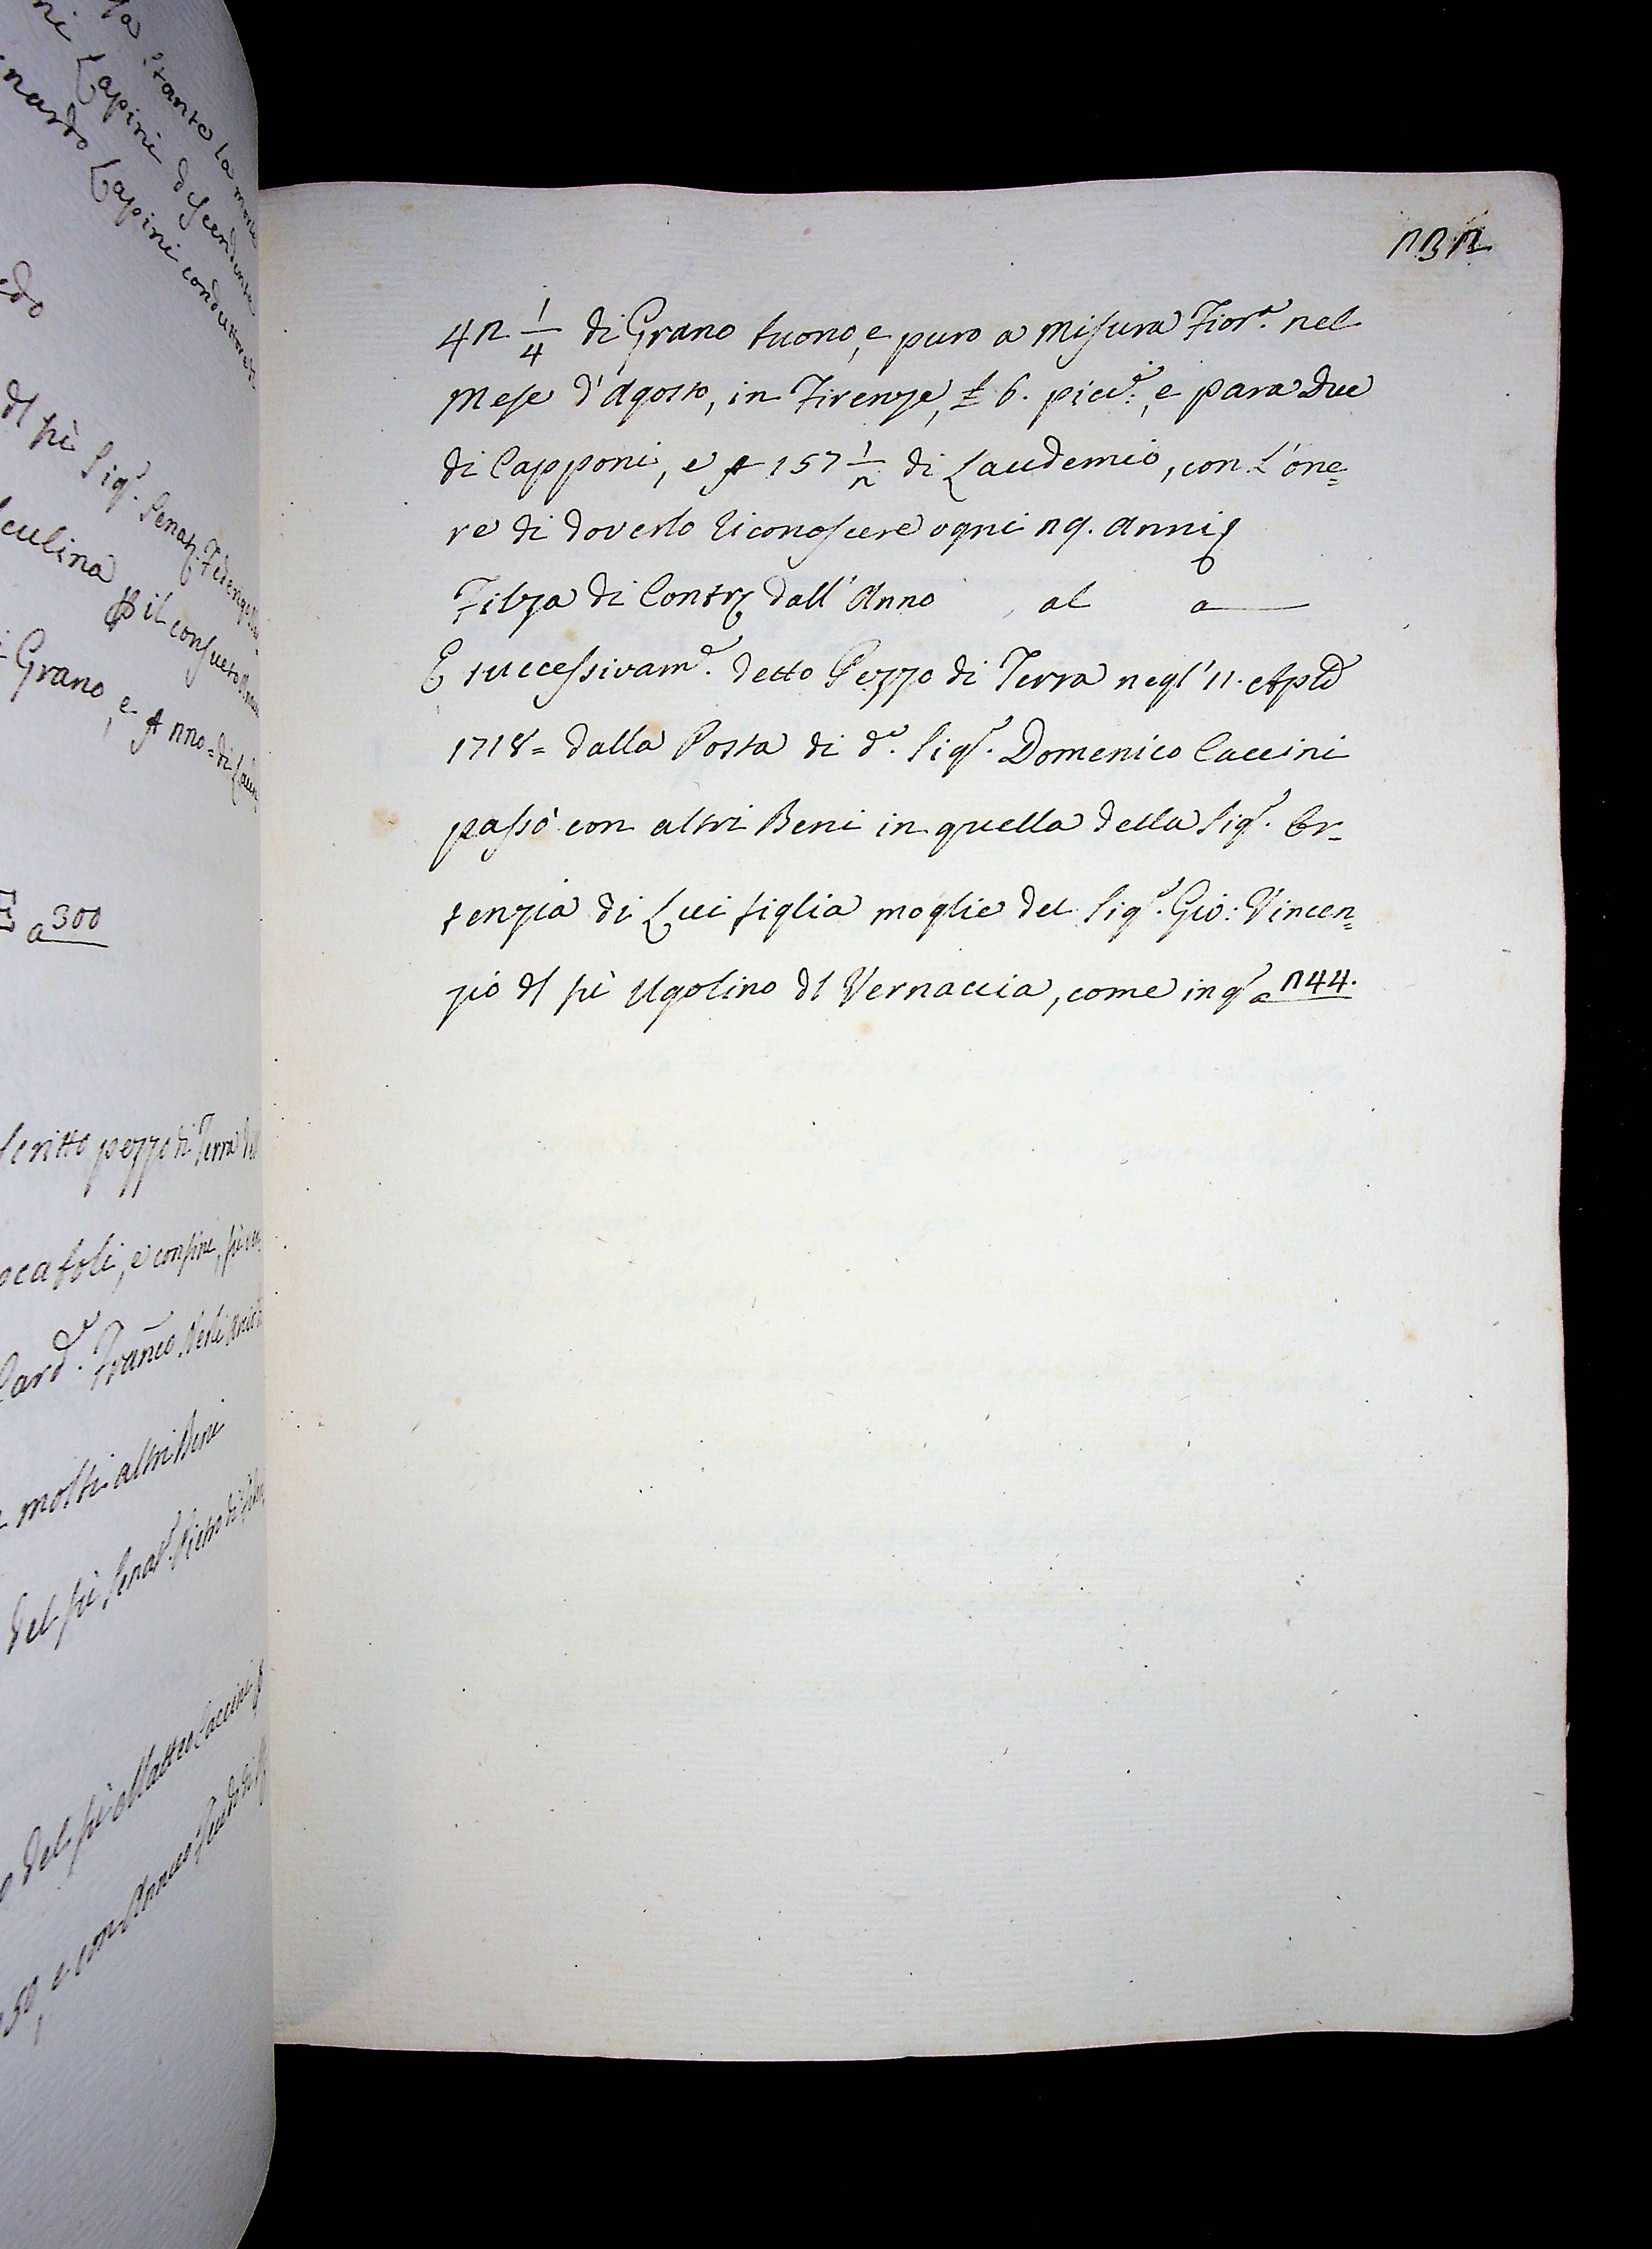 stante la morte
Lapini discendente
Lapini conduttore
dl fù Sig.r Senat. Federigo
sculina
il consueto
Grano, e
a 300
scritto pezzo di Terra
e confine,
Card.e Franco Nerli
molti altri Beni
del fù Senat.r Pietro di
del fù Matteo Caccini
e con Annuo
232
42 1/4 di Grano buono, e puro a misura Fior.a nel
Mese d'Agosto, in Firenze, £ 6. picc.i, e para Due
di Capponi, e # 157 1/2 di Laudemio, con l'one=
re di doverlo riconoscere ogni 29. anni
Filza di Contr. dall'Anno al a
E successivam.e detto Pezzo di Terra negl'11. Aple
1718= dalla Posta di d.o Sig.r Domenico Caccini
passò con altri Beni in quella della Sig.ra Or=
tenzia di Lui figlia moglie del Sig.r Gio: Vincen=
zio dl fù Ugolino dl Vernaccia, come in q.o a 244.